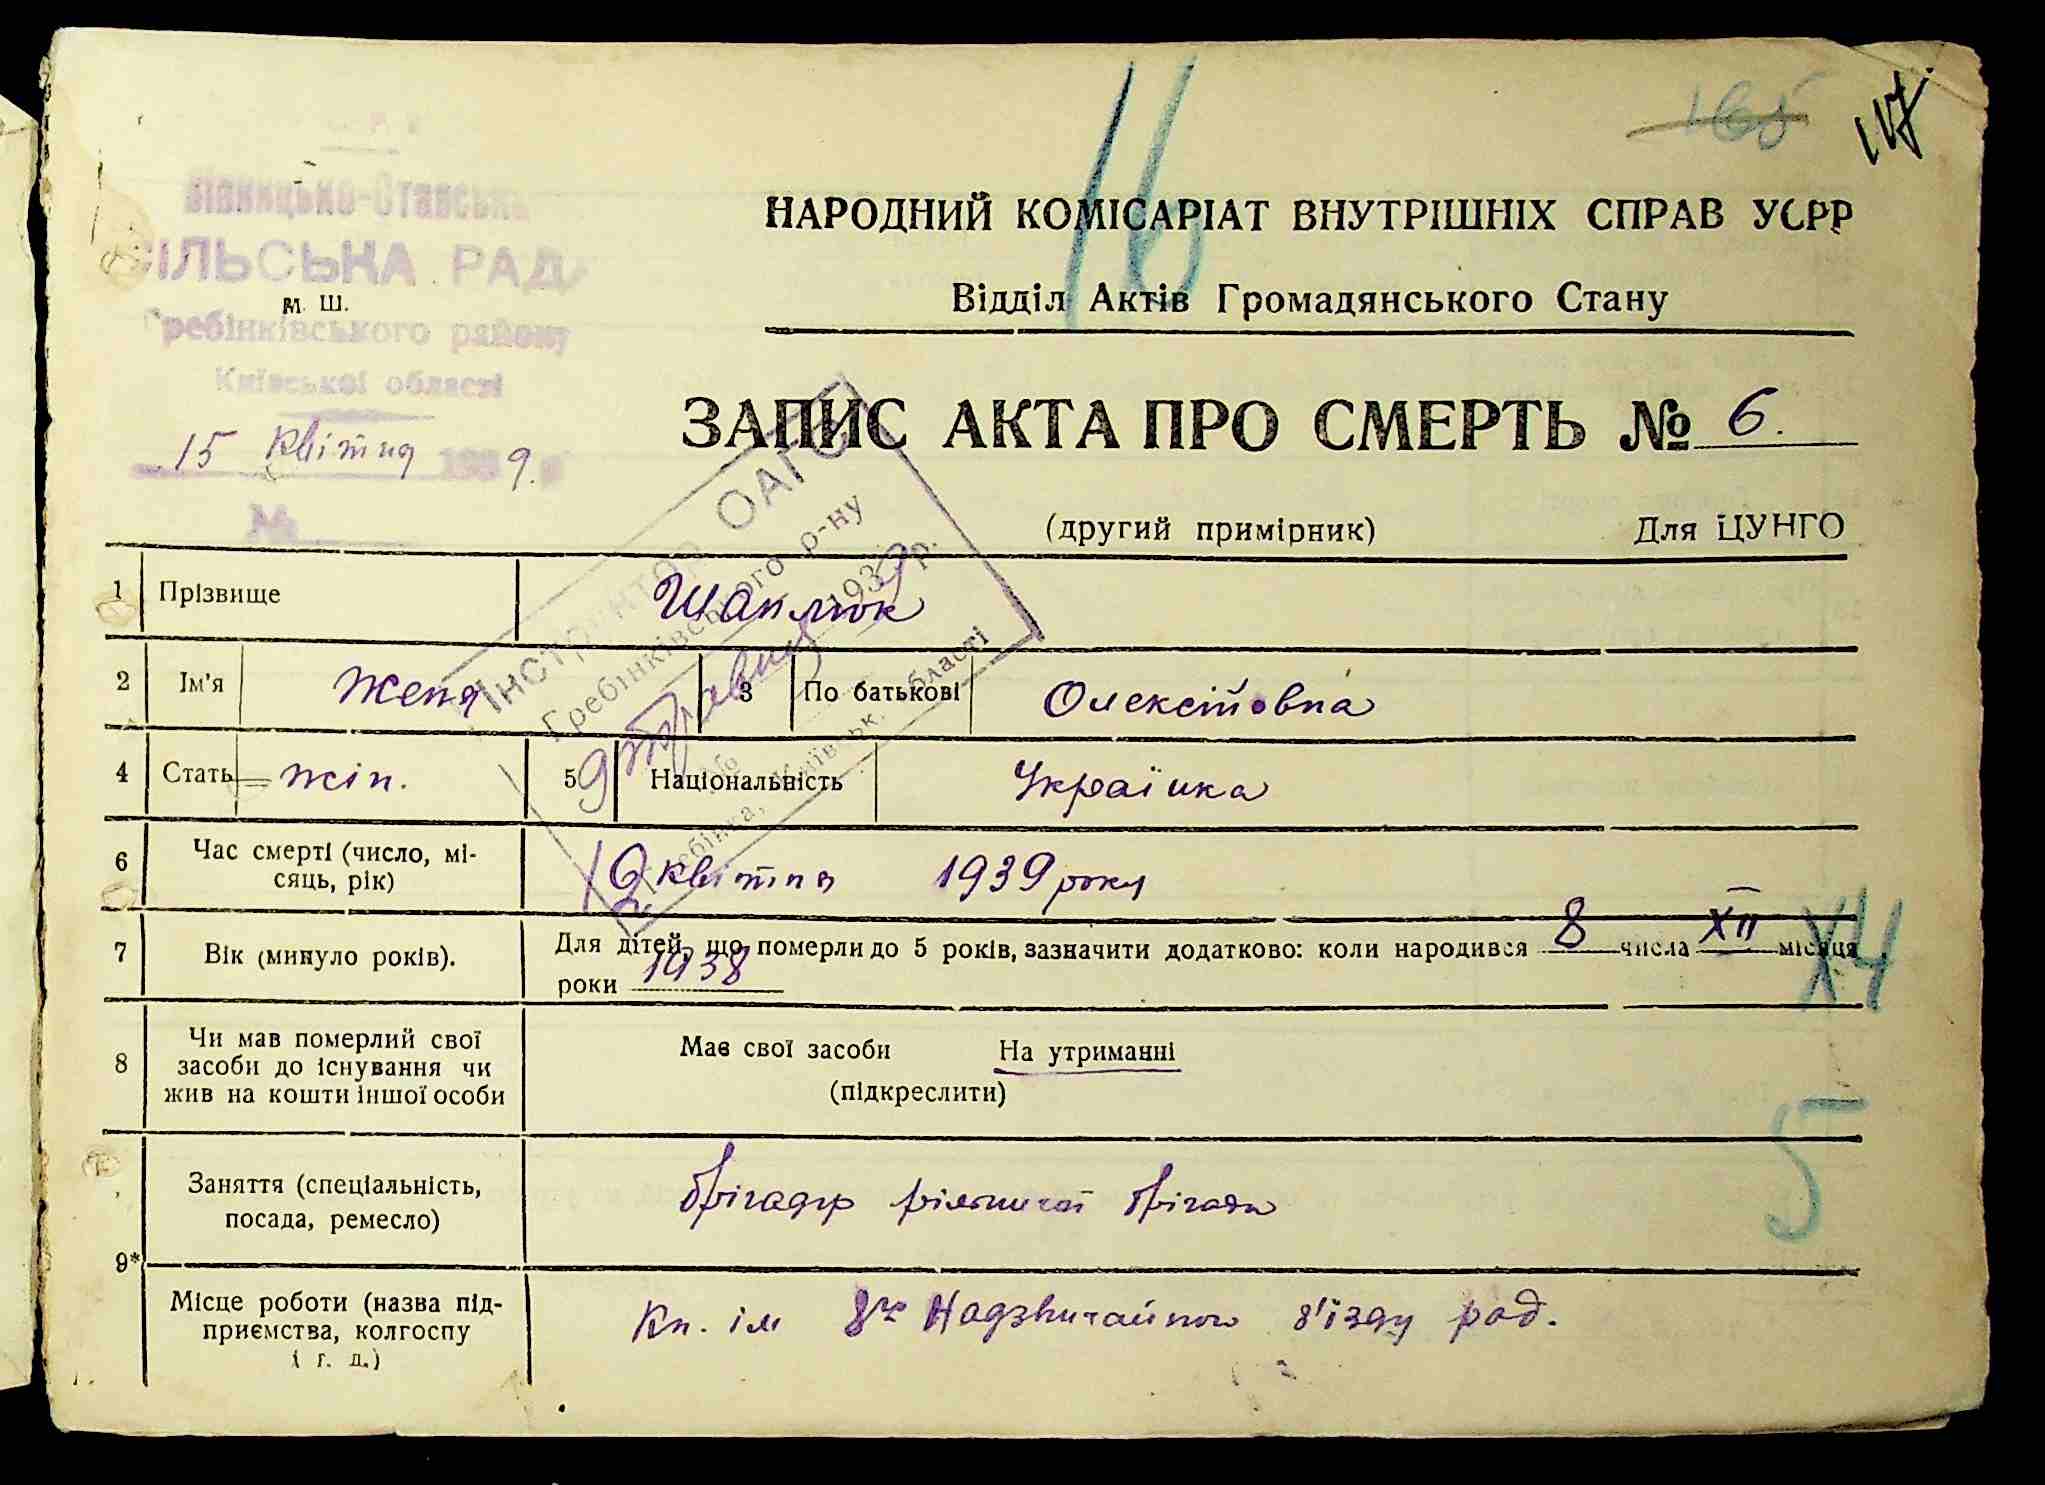 165
117
16
Вінницько-Ставська
СІЛЬСЬКА РАДА
м. Ш.
Гребінківського району
Київської області
15 Квітня 1939 р
№
НАРОДНИЙ КОМІСАРІАТ ВНУТРІШНІХ СПРАВ УСРР
Відділ Актів Громадянського Стану
ЗАПИС АКТА ПРО СМЕРТЬ № 6.
(другий примірник) Для ЦУНГО
Інструктор ОАГС
Гребінківського р-ну
9 травня 1939 р.
Гребінка, Київськ. області
1 Прізвище Шаплюк
2 Ім'я Женя 3 По батькові Олексійовна
4 Стать жін. 5 Національність Українка
6 Час смерті (число, мі-
сяць, рік) 12 квітня 1939 року
7 Вік (минуло років). Для дітей, що померли до 5 років, зазначити додатково: коли народився 8 числа XII місяця
роки 1938
8 Чи мав померлий свої
засоби до існування чи
жив на кошти іншої особи
Має свої засоби На утриманні
(підкреслити)
5
9* Заняття (спеціальність,
посада, ремесло) бригадір рільничої брігади
Місце роботи (назва під-
приємства, колгоспу
і г. д.) Кп. ім 8го Надзвичайного з'їзду рад.